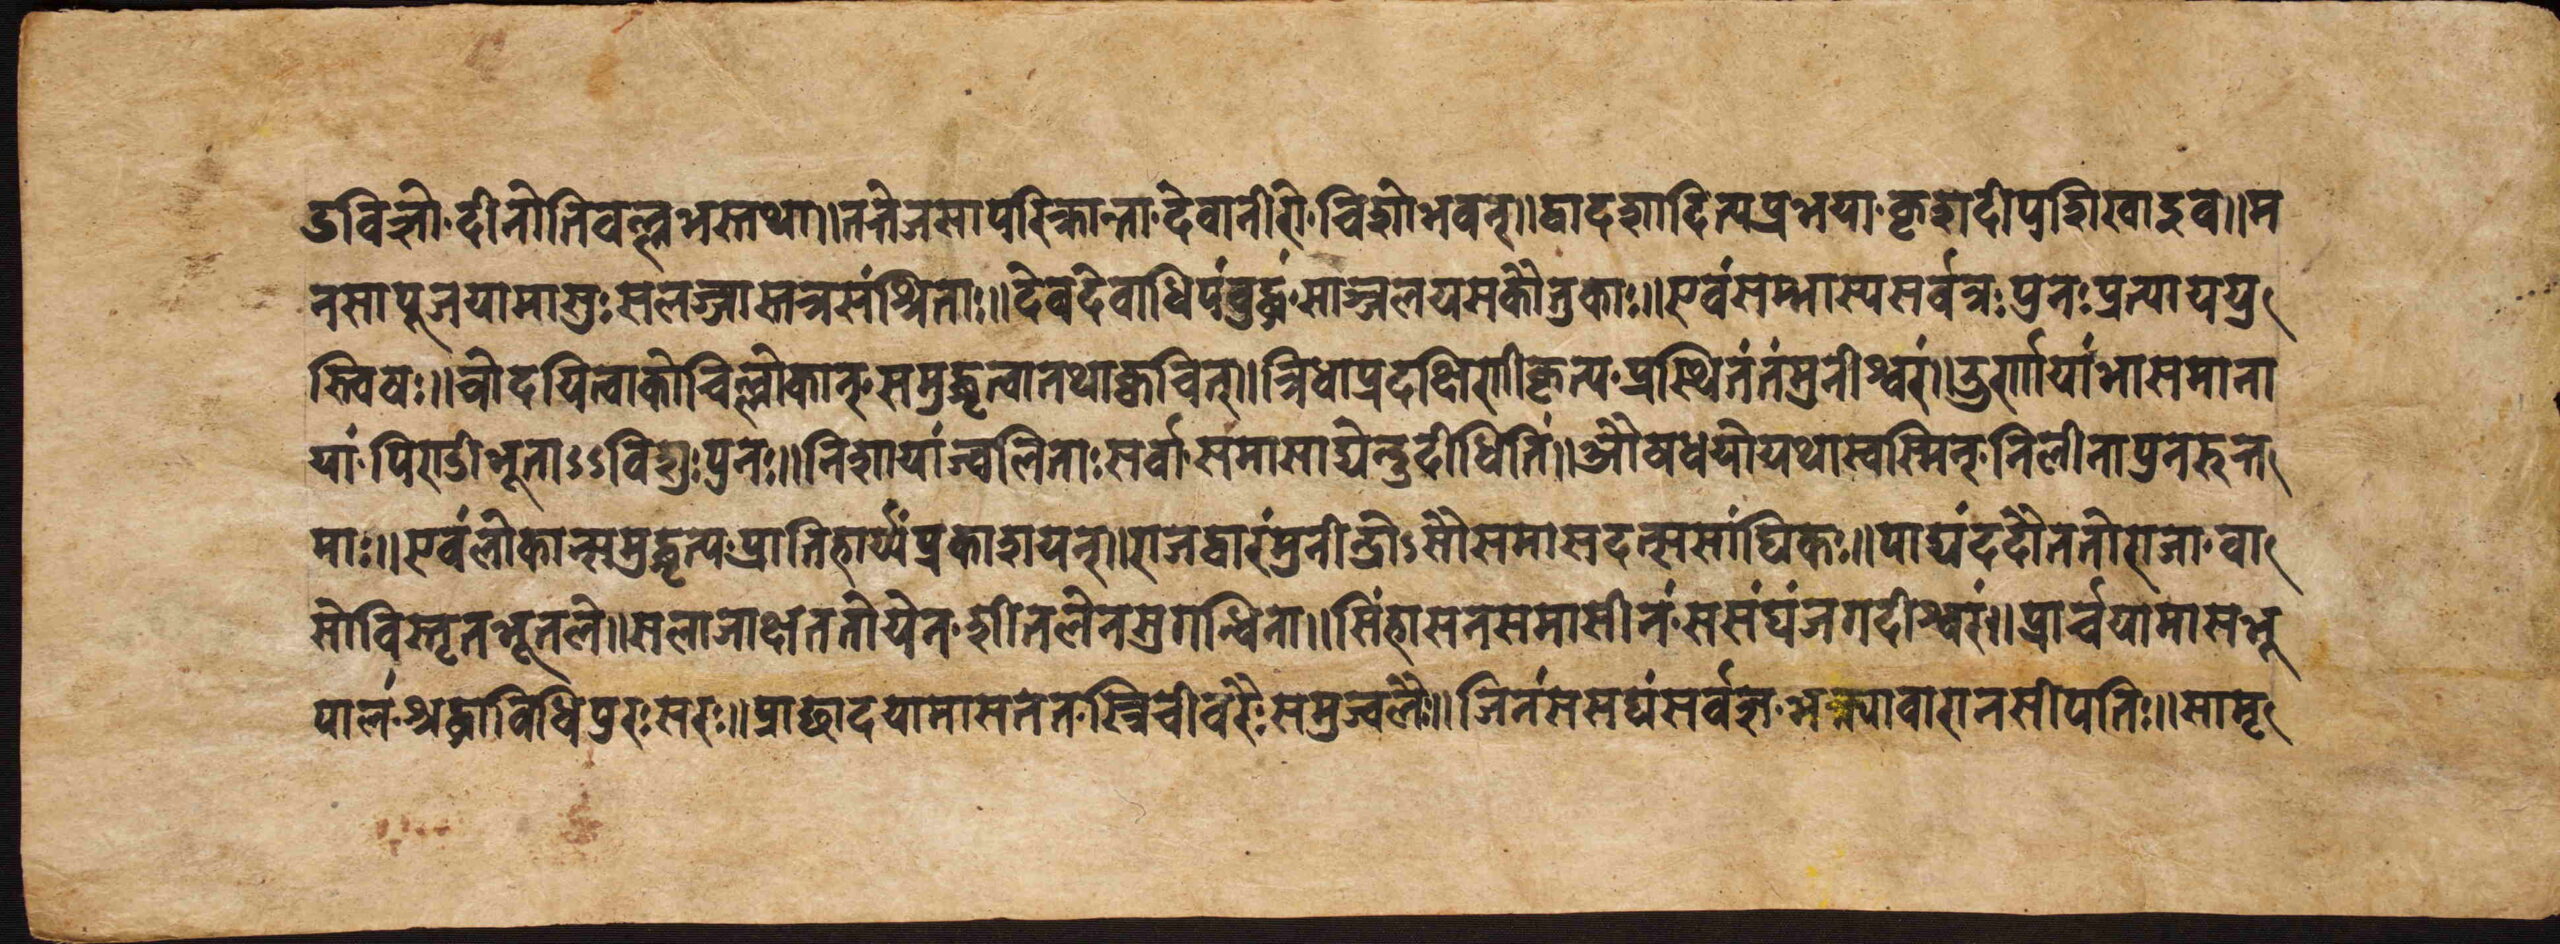 डविज्ञो दीनोतिवल्लभस्तथा॥तत्तेजसापरिक्रान्ता देवानीशे चिशोभवन्॥द्वादशादित्यप्रभया कृशादीपशिखाइव॥म
नसापूजयामासुः सलज्जास्तत्रसंश्रिताः॥देवदेवाधिपंबुद्धं साञ्जलयसकौतुकाः॥एवंसम्भास्यसर्वत्रः पुनः प्रत्याययु
स्त्विषः॥चोदयित्वाकोचिल्लोकान् समुद्धृत्वातथाक्वचित्॥त्रिधाप्रदक्षिणीकृत्य प्रस्थितंतंमुनीश्वरं॥दुर्णायांभासमाना
यां पिण्डीभूताऽऽविशुः पुनः॥निशायांज्वलिताः सर्वा समासाद्येन्दुदीधितिं॥औषधयोयथास्वस्मिन् निलीनापुनरुत्त
माः॥एवंलोकान्समुद्धृत्य प्रातिहार्य्यंप्रकाशयन्॥राजद्वारंमुनीन्द्रोऽसौसमासदत्ससांघिकः॥पाद्यंददौततोराजा वा
सोविस्तृतभूतले॥सलाजाक्षततोयेन शीतलेनसुगन्धिना॥सिंहासनसमासीनं ससंघंजगदीश्वरं॥प्रार्चयामासभू
पालं श्रद्धाविधिपुरःसरः॥प्राच्छादयामासततत स्त्रिचीवरैः समुज्वलैः॥जिनंससघंसर्वज्ञ भक्त्यावारानसीपतिः॥सामृ